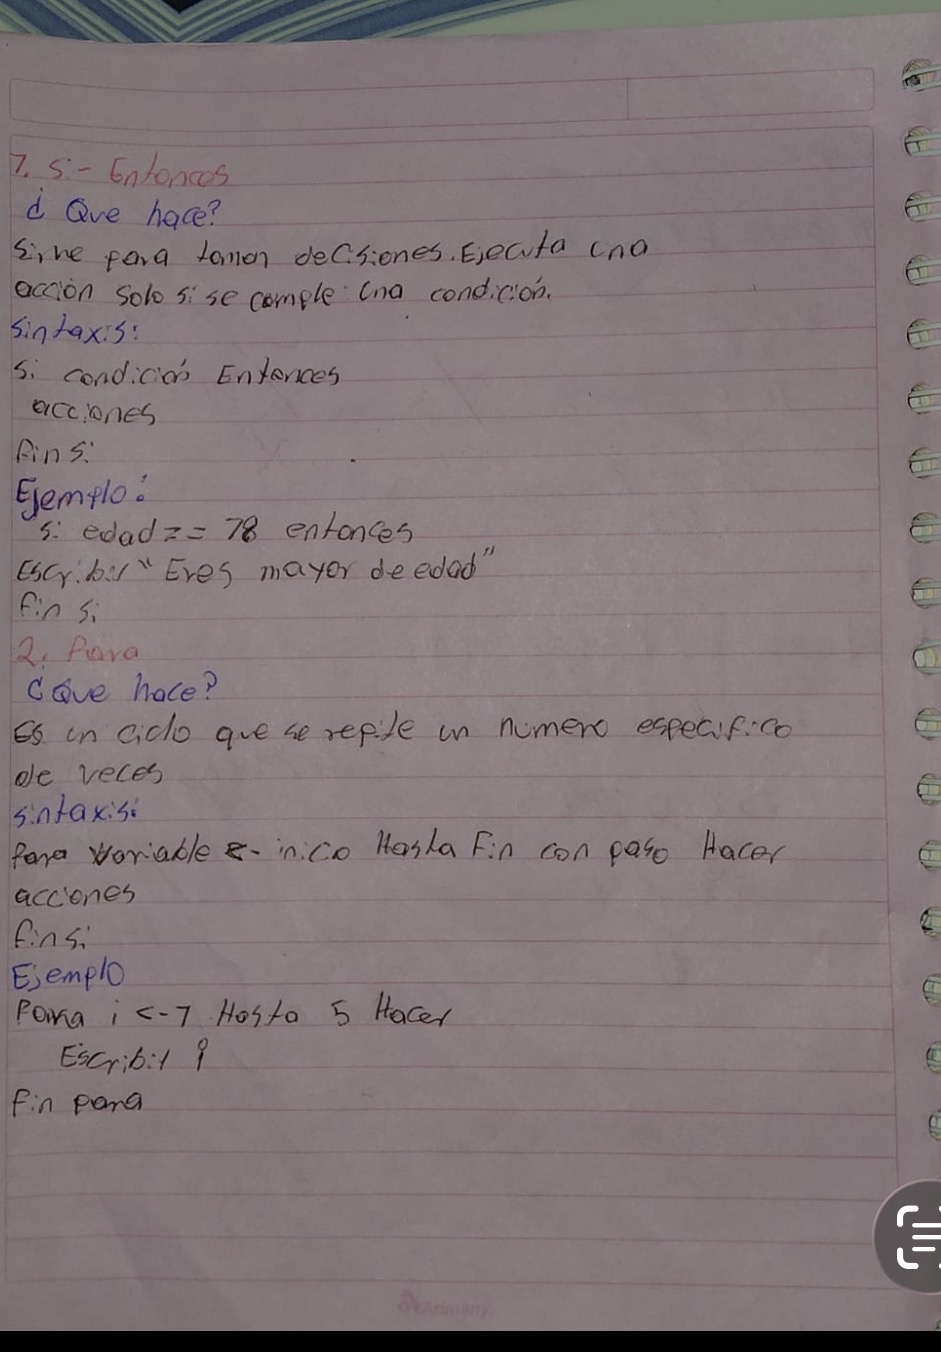 1. Si - Entonces
¿ Que hace?
Sirve para tomar decisiones. Ejecuta una
acción solo si se cumple una condición.
Sintaxis:
Si condición Entonces
acciones
Fin si
Ejemplo:
Si edad == 18 entonces
Escribir "Eres mayor de edad"
Fin si
2. Para
¿Que hace?
Es un ciclo que se repite un numero especifico
de veces
sintaxis:
Para variable <- inico Hasta Fin con paso Hacer
acciones
Fin si
Ejemplo
Para i <- 1 Hasta 5 Hacer
Escribir i
Fin para
Artimany